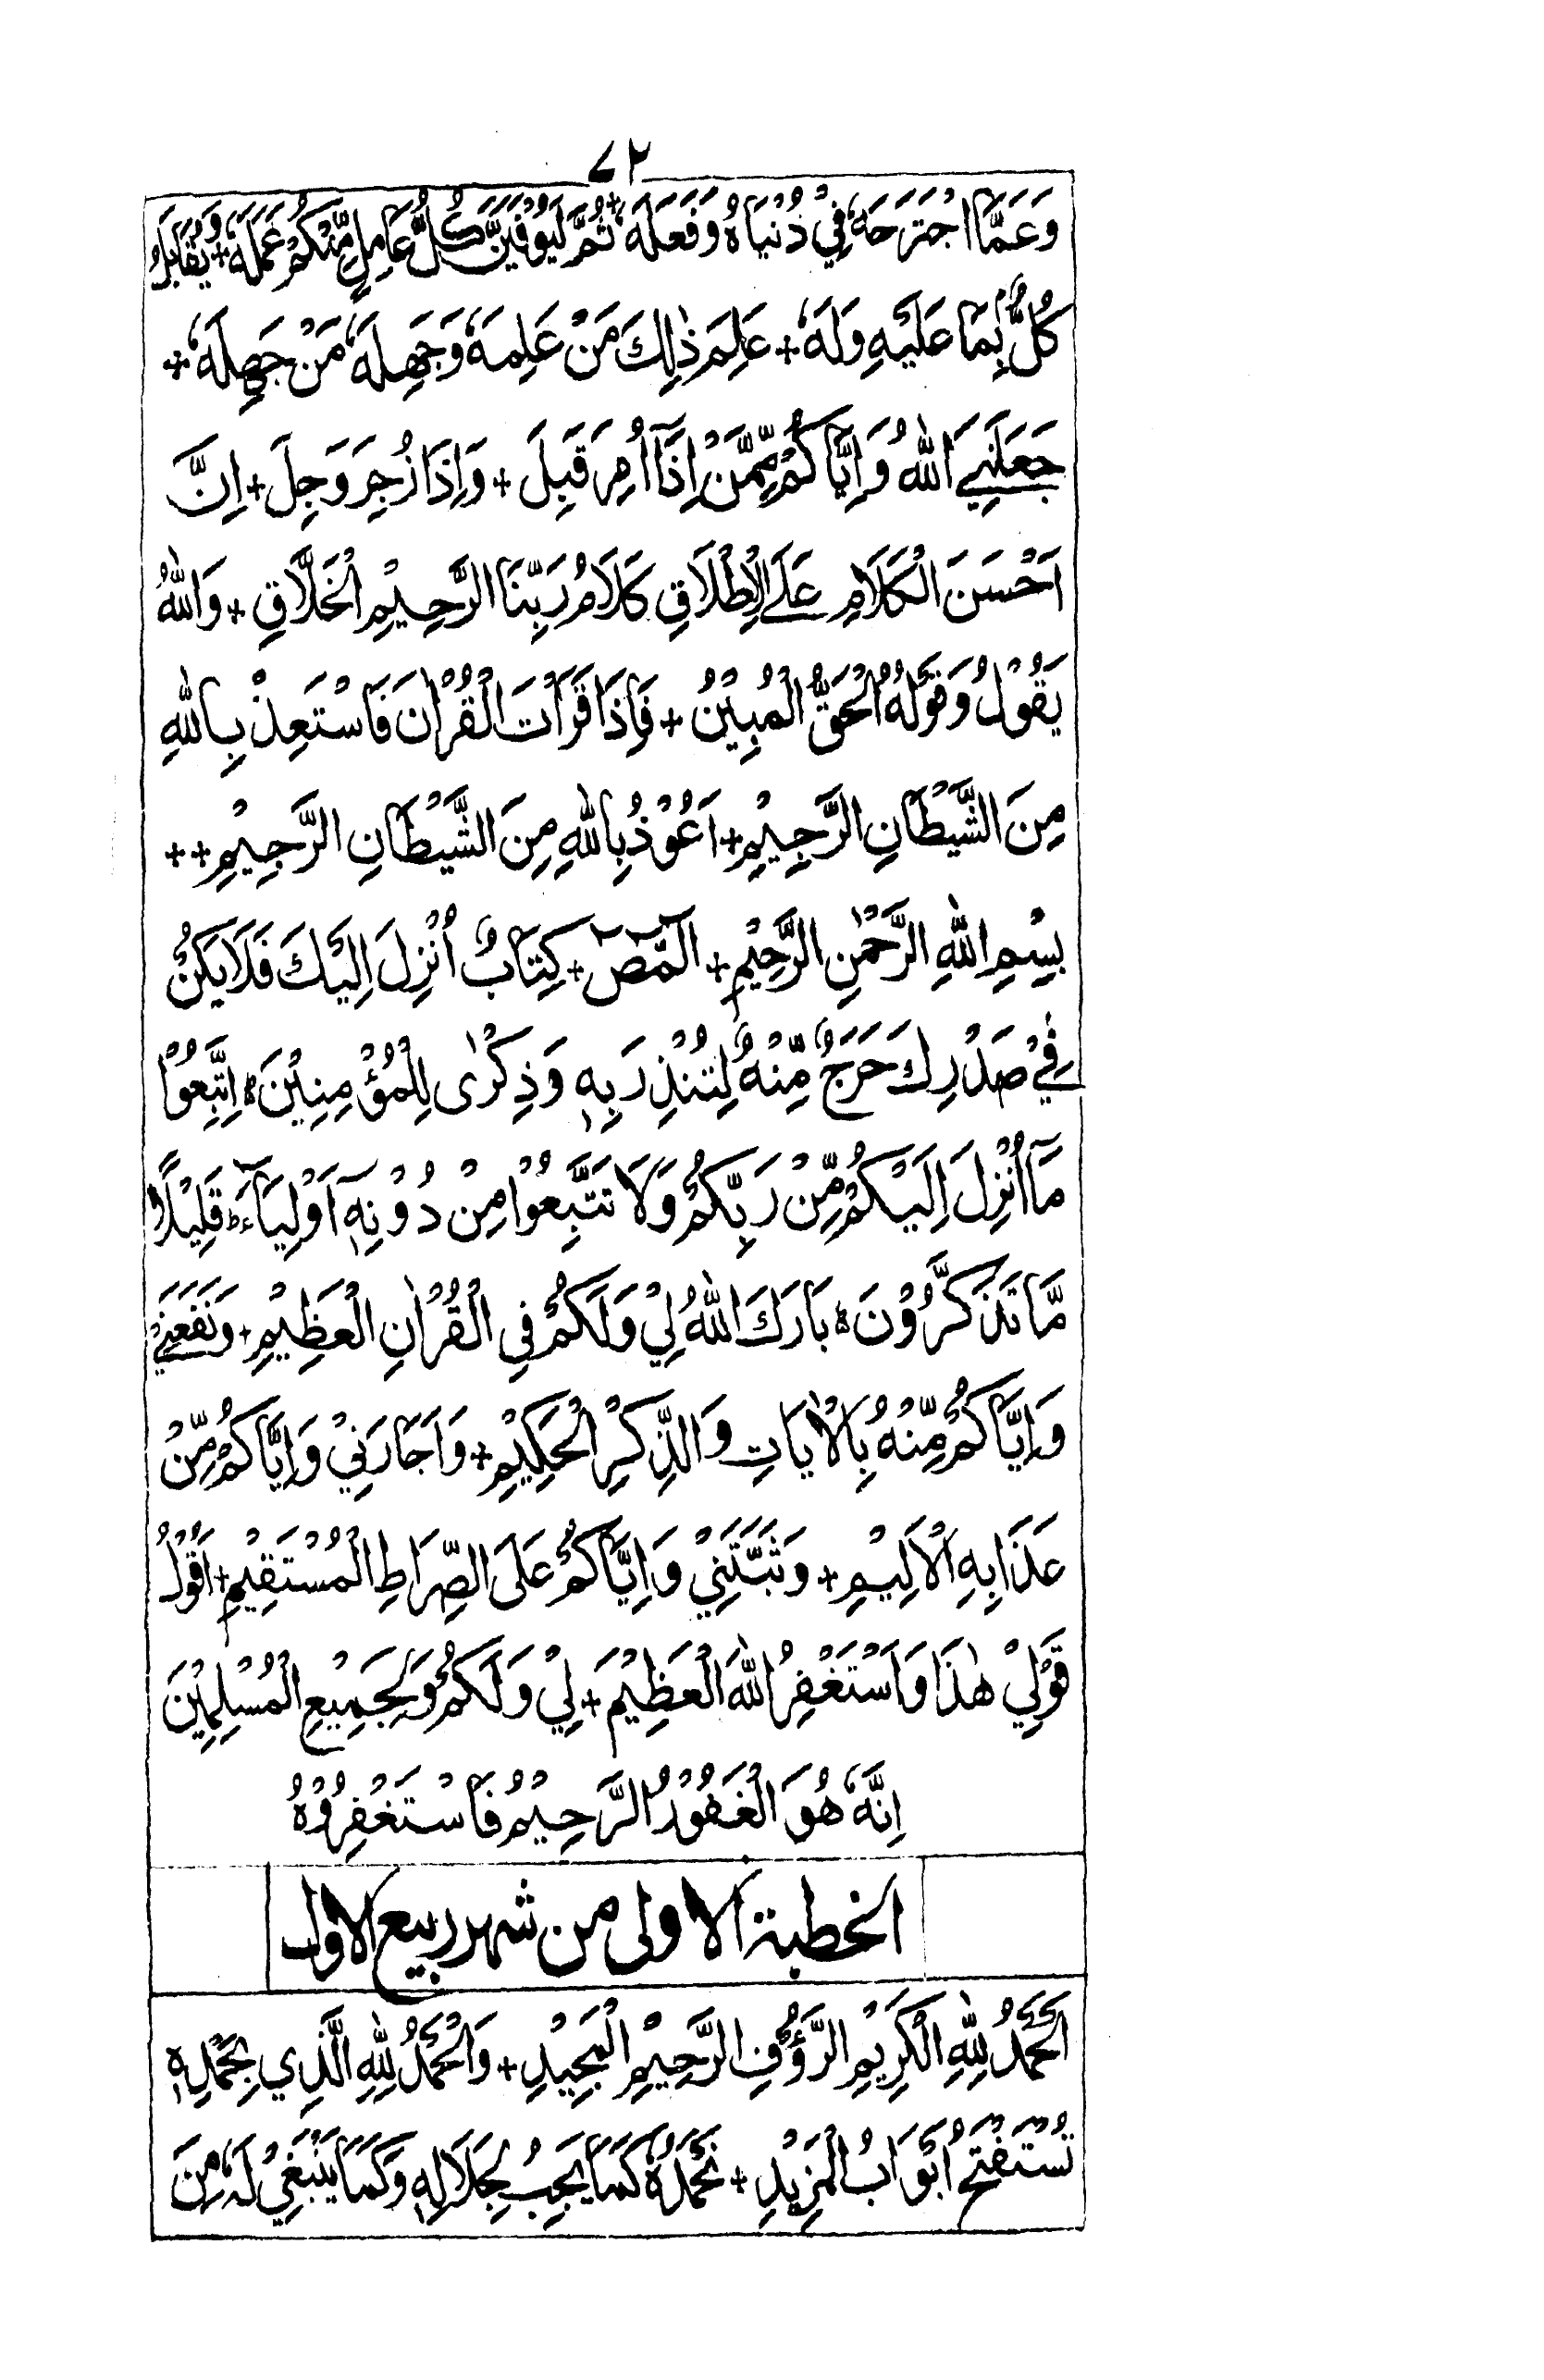 ٧٢
وَعَمَّا اجْتَرَحَهٗ فِيْ دُنْيَاهُ وَفَعَلَهٗ + ثُمَّ لَيُوَفَّيَنَّ كُلُّ عَامِلٍ مِّنْكُمْ عَمَلَهٗ + وَيُقَابَلُ
كُلٌّ بِمَا عَلَيْهِ وَلَهٗ + عَلِمَ ذٰلِكَ مَنْ عَلِمَهٗ وَجَهِلَهٗ مَنْ جَهِلَهٗ +
جَعَلَنِيَ اللهُ وَاِيَّاكُمْ مِّمَّنْ اِذَآ اُمِرَ قَبِلَ + وَاِذَا زُجِرَ وَجِلَ + اِنَّ
اَحْسَنَ الْكَلَامِ عَلَى الْاِطْلَاقِ كَلَامُ رَبِّنَا الرَّحِيْمِ الْخَلَّاقِ + وَاللهُ
يَقُوْلُ وَقَوْلُهُ الْحَقُّ الْمُبِيْنُ + فَاِذَا قَرَاْتَ الْقُرْاٰنَ فَاسْتَعِذْ بِاللهِ
مِنَ الشَّيْطَانِ الرَّجِيْمِ + اَعُوْذُ بِاللهِ مِنَ الشَّيْطَانِ الرَّجِيْمِ ++
بِسْمِ اللهِ الرَّحْمٰنِ الرَّحِيْمِ + الٓمّٓصٓ + كِتَابٌ اُنْزِلَ اِلَيْكَ فَلَا يَكُنْ
فِيْ صَدْرِكَ حَرَجٌ مِّنْهُ لِتُنْذِرَ بِهٖ وَذِكْرٰى لِلْمُؤْمِنِيْنَ ۝ اِتَّبِعُوْا
مَآ اُنْزِلَ اِلَيْكُمْ مِّنْ رَبِّكُمْ وَلَا تَتَّبِعُوْا مِنْ دُوْنِهٖٓ اَوْلِيَآءَ ؕ قَلِيْلًا
مَّا تَذَكَّرُوْنَ ۝ بَارَكَ اللهُ لِيْ وَلَكُمْ فِي الْقُرْاٰنِ الْعَظِيْمِ + وَنَفَعَنِيْ
وَاِيَّاكُمْ مِّنْهُ بِالْاٰيَاتِ وَالذِّكْرِ الْحَكِيْمِ + وَاَجَارَنِيْ وَاِيَّاكُمْ مِّنْ
عَذَابِهِ الْاَلِيْمِ + وَثَبَّتَنِيْ وَاِيَّاكُمْ عَلَى الصِّرَاطِ الْمُسْتَقِيْمِ + اَقُوْلُ
قَوْلِيْ هٰذَا وَاَسْتَغْفِرُ اللهَ الْعَظِيْمَ + لِيْ وَلَكُمْ وَلِجَمِيْعِ الْمُسْلِمِيْنَ
اِنَّهٗ هُوَ الْغَفُوْرُ الرَّحِيْمُ فَاسْتَغْفِرُوْهُ
الخطبة الاولى من شهر ربيع الاول
اَلْحَمْدُ لِلّٰهِ الْكَرِيْمِ الرَّؤُفِ الرَّحِيْمِ الْمَجِيْدِ + وَالْحَمْدُ لِلّٰهِ الَّذِي بِحَمْدِهٖ
تُسْتَفْتَحُ اَبْوَابُ الْمَزِيْدِ + نَحْمَدُهٗ كَمَا يَجِبُ لِجَلَالِهٖ وَكَمَا يَنْبَغِيْ لَهٗ مِنَ